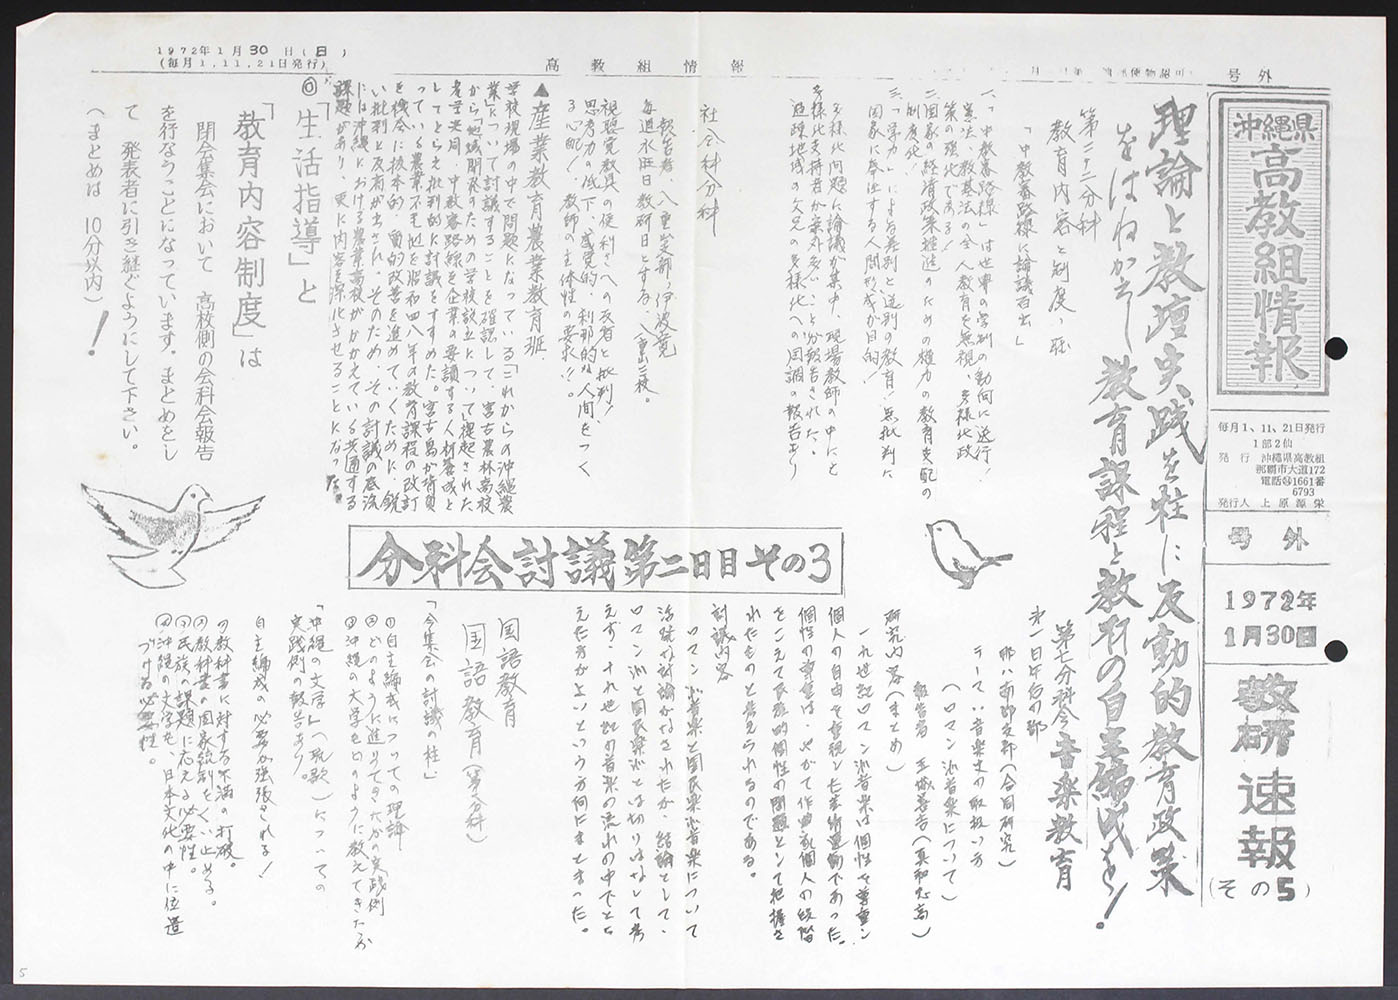 1972年1月30日(日)
(毎月1,11,21日発行)
高教組情報
号外
沖縄県
高教組情報
毎月1、11、21日発行
1部2仙
発行 沖縄県高教組
那覇市大道172
1661番
6793
発行人 上原源栄
号外
1972年
1月30日
教研速報
(その5)
理論と教壇実践を柱に反動的教育政策
をはねかえし教育課程と教科の自主編成を!
第二十二分科
教育内容と制度
「中教審路線に論議百出」
一、「中教審路線」は世界の学制の動向に逆行!
憲法、教基法の全人教育を無視、多様化政
策の強化である!
二、国家の経済政策推進のための権力の教育支配の
制度化!
三、「学力」による差別と選別の教育!無批判に
国家に奉仕する人間形成が目的!
多様化問題に論議が集中、現場教師の中にも
多様化支持者が案外多いことが報告された。
社会科分科
報告者、八重山支部、伊波寛
毎週水旺日教研日とする、
視聴覚教具の便利さへの反省と批判!
思考力の低下、感覚的・刹那的な人間をつく
る心配!教師の主体性の要求!!
▲産業教育農業教育班
学校現場の中で問題になっている「これからの沖縄農
業」について討議することを確認して、宮古農林高校
から「地域開発のための学校設立について」提起された
してとらえ批判的に討議をすすめた。
い批判と反省が出され、そのため、その討議の底流
には沖縄における農業高校がかかえている共通する
課題があり、更に内容を深化させることになった。
◎「生活指導」と
「教育内容制度」は
閉会集会において 高校側の会科会報告
を行なうことになっています。まとめをし
て 発表者に引き継ぐようにして下さい。
(まとめは 10分以内)!
分科会討議第二日目その3
第一日午后の部
第七分科会音楽教育
那八南部支部(合同研究)
テーマ 音楽史の取扱い方
(ロマン派音楽について)
研究内容(まとめ)
報告者 玉城善吉(真和志高)
一九世紀ロマン派音楽は個性を尊重し
個人の自由を重視した芸術運動であった。
個性の尊重は、やがて作曲家個人の段階
をこえて民族的個性の問題として把握さ
れたものと考えられるのである。
討議内容
ロマン派音楽と国民楽派音楽について
活発な討論がなされたが、結論として、
ロマン派と国民楽派とは切りはなして考
えず、十九世紀の音楽の流れの中でとら
えた方がよいという方向にまとまった。
国語教育
国語教育(第一分科)
「今集会の討議の柱」
①自主編成についての理論
②どのように進めてきたかの実践例
③沖縄の文学をどのように教えてきたか
「沖縄の文学」(琉歌)についての
実践例の報告あり。
自主編成の必要が強張される!
①教科書に対する不満の打破。
②教科書の国家統制をくい止める。
③民族の課題に応える必要性。
④沖縄の文学を、日本文化の中に位置
づける必要性。
5